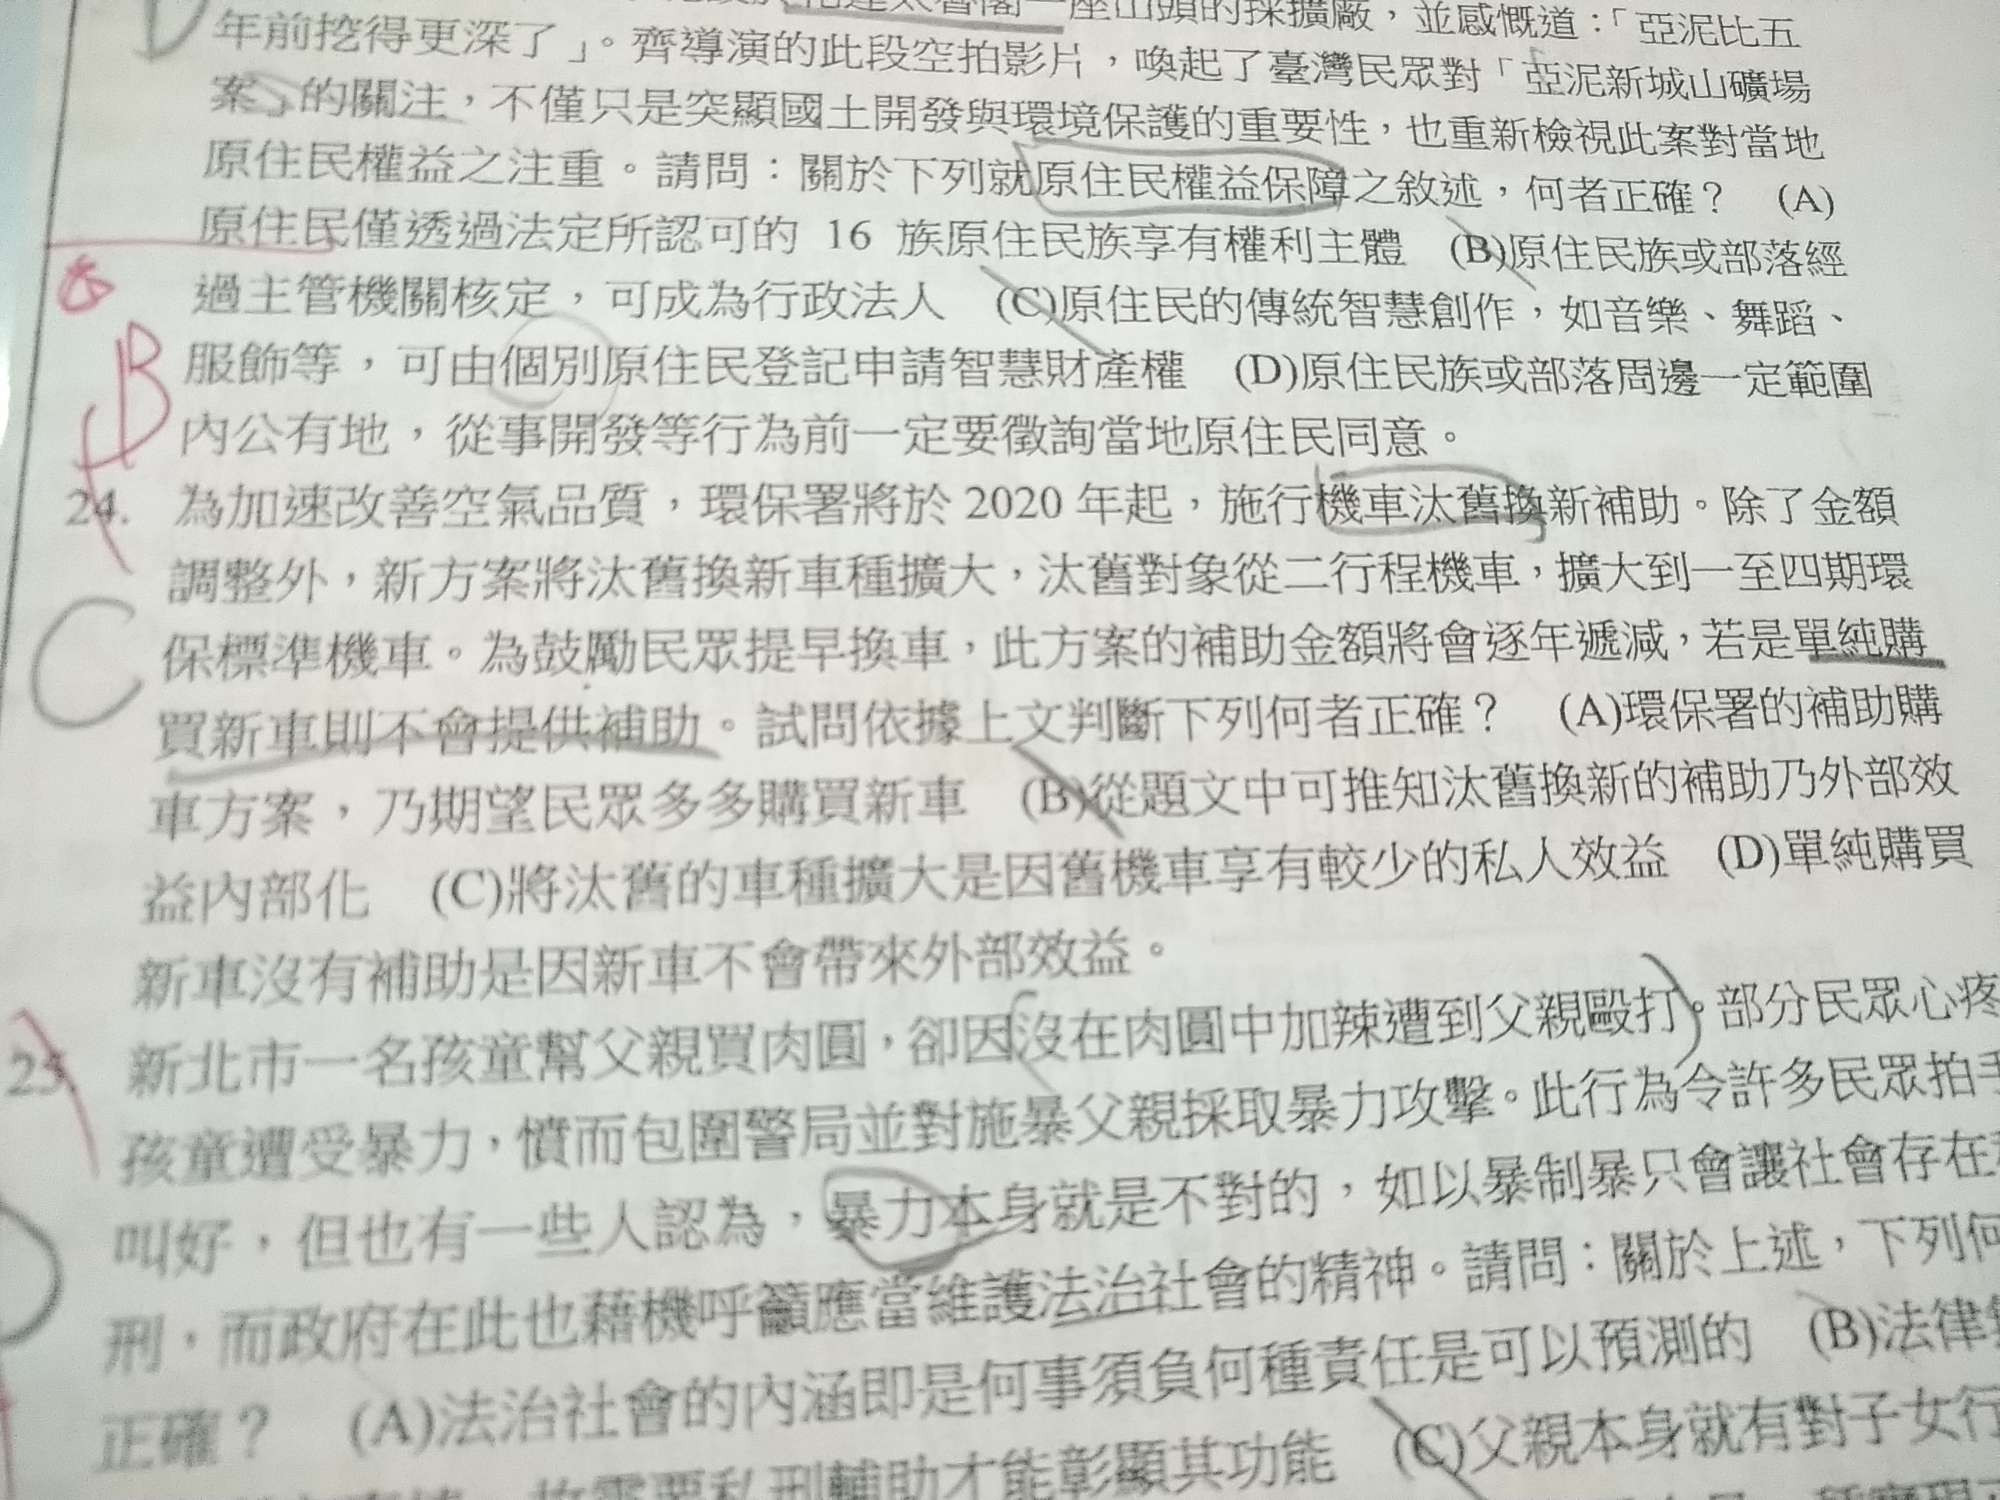 一座山頭的採擴廠，並感慨道：「亞泥比五
年前挖得更深了」。齊導演的此段空拍影片，喚起了臺灣民眾對「亞泥新城山礦場
案」的關注，不僅只是突顯國土開發與環境保護的重要性，也重新檢視此案對當地
原住民權益之注重。請問：關於下列就原住民權益保障之敘述，何者正確？ (A)
原住民僅透過法定所認可的 16 族原住民族享有權利主體 (B)原住民族或部落經
過主管機關核定，可成為行政法人 (C)原住民的傳統智慧創作，如音樂、舞蹈、
服飾等，可由個別原住民登記申請智慧財產權 (D)原住民族或部落周邊一定範圍
B
內公有地，從事開發等行為前一定要徵詢當地原住民同意。
24. 為加速改善空氣品質，環保署將於 2020 年起，施行機車汰舊換新補助。除了金額
調整外，新方案將汰舊換新車種擴大，汰舊對象從二行程機車，擴大到一至四期環
C
保標準機車。為鼓勵民眾提早換車，此方案的補助金額將會逐年遞減，若是單純購
買新車則不會提供補助。試問依據上文判斷下列何者正確？ (A)環保署的補助購
車方案，乃期望民眾多多購買新車 (B)從題文中可推知汰舊換新的補助乃外部效
益內部化 (C)將汰舊的車種擴大是因舊機車享有較少的私人效益 (D)單純購買
新車沒有補助是因新車不會帶來外部效益。
25. 新北市一名孩童幫父親買肉圓，卻因沒在肉圓中加辣遭到父親毆打。部分民眾心疼
孩童遭受暴力，憤而包圍警局並對施暴父親採取暴力攻擊。此行為令許多民眾拍手
叫好，但也有一些人認為，暴力本身就是不對的，如以暴制暴只會讓社會存在
刑，而政府在此也藉機呼籲應當維護法治社會的精神。請問：關於上述，下列何
正確？ (A)法治社會的內涵即是何事須負何種責任是可以預測的 (B)法律
故需要私刑輔助才能彰顯其功能 (C)父親本身就有對子女行